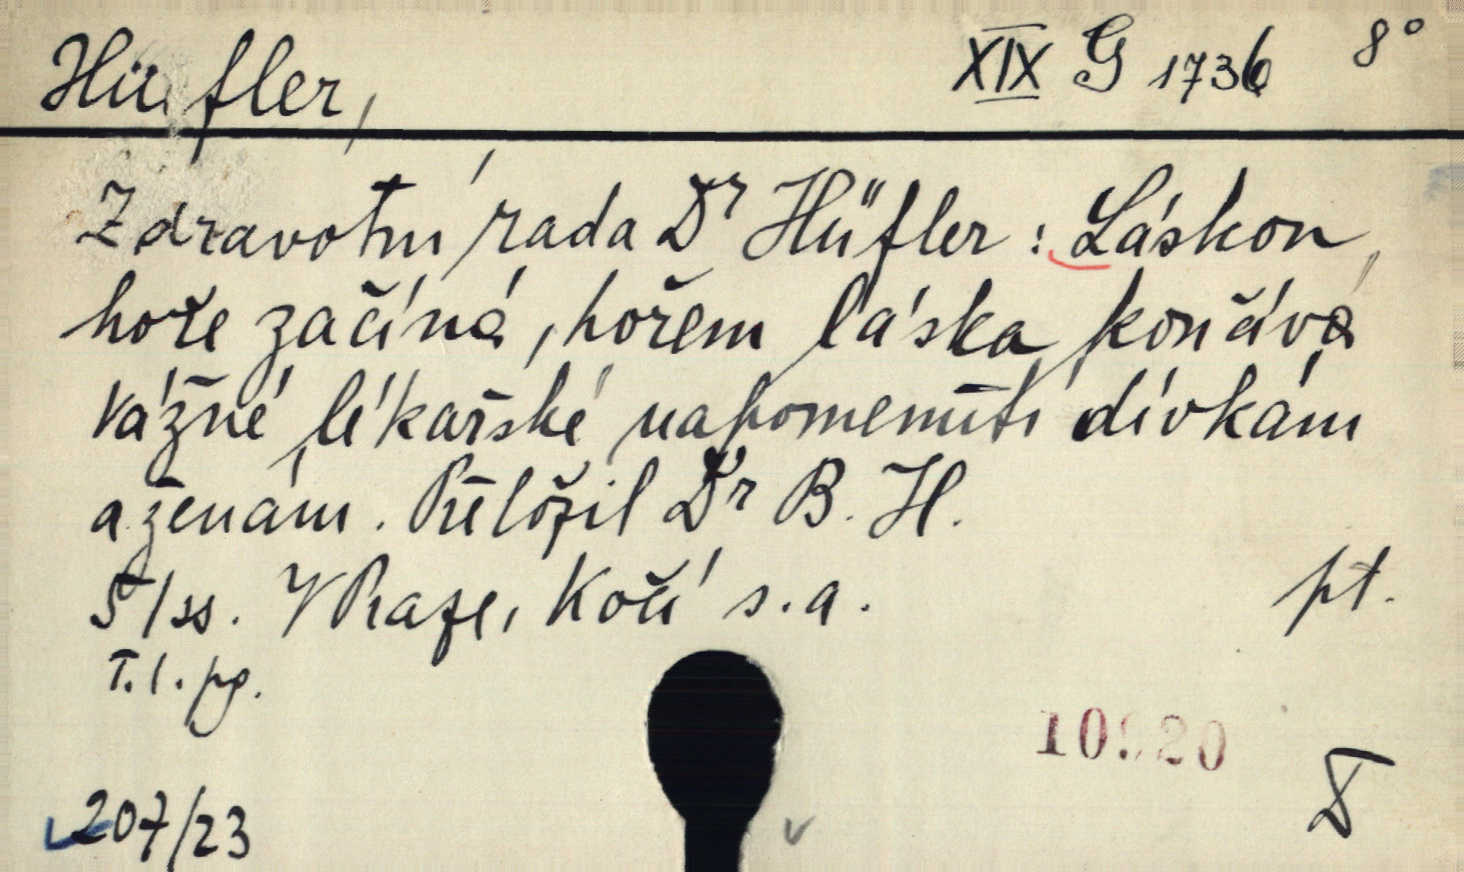 Hüfler,
XIX G 1736 8°
Zdravotní rada Dr Hüfler: Láskou
hoře začíná, hořem láska končává
Vážné lékařské napomenutí dívkám
a ženám. Přeložil Dr B. H.
51 ss. V Praze, Kočí s. a.
pt.
T. l. pg.
207/23